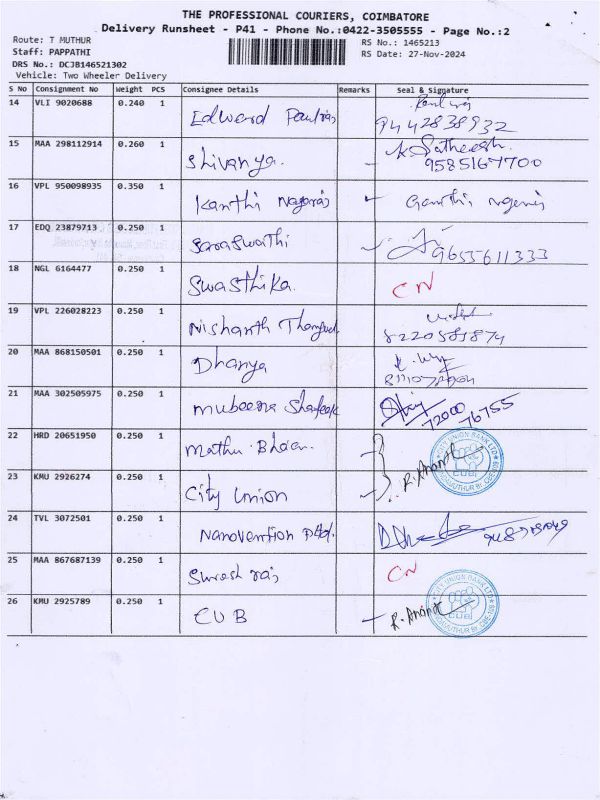 THE PROFESSIONAL COURIERS, COIMBATORE
Delivery Runsheet - P41 - Phone No.:0422-3505555 - Page No.:2
Route: T MUTHUR RS No.: 1465213
Staff: PAPPATHI RS Date: 27-Nov-2024
DRS No.: DCJB146521302
Vehicle: Two Wheeler Delivery
S No Consignment No Weight PCS Consignee Details Remarks Seal & Signature
14 VLI 9020688 0.240 1 Edward
9442838932
15 MAA 298112914 0.260 1 Shivanya. K Satheesh
9585167700
16 VPL 950098935 0.350 1 Kanthi Nagaraj
17 EDQ 23879713 0.250 1 Saraswathi 9655611333
18 NGL 6164477 0.250 1 Swasthika. CN
19 VPL 226028223 0.250 1 Nishanth
8220581874
20 MAA 868150501 0.250 1 Dhanya
21 MAA 302505975 0.250 1 Mubeena 72000 76755
22 HRD 20651950 0.250 1 Mathu R. Ananth
CITY UNION BANK LTD
CUB
23 KMU 2926274 0.250 1 City Union
24 TVL 3072501 0.250 1 Nanovention
25 MAA 867687139 0.250 1 Suresh raj CN
26 KMU 2925789 0.250 1 CUB R. Ananth
CITY UNION BANK LTD
CUB